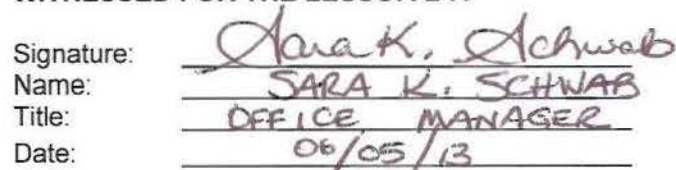 Signature: Sara K. Schwab
Name: SARA K. SCHWAB
Title: OFFICE MANAGER
Date: 06/05/13